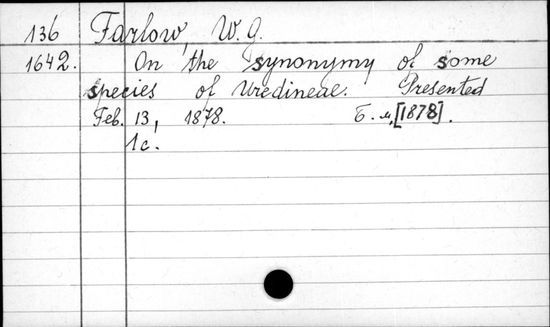 136 Farlow, W. G.
1642. On the synonymy of some
species of Uredineae. Presented
Feb. 13, 1878. Б. м., [1878].
1c.